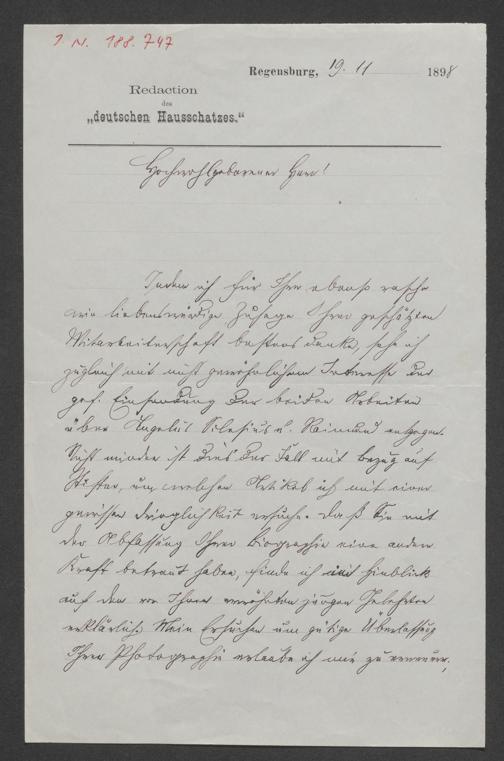 J. N. 188.747
Regensburg, 19. 11 1898
Redaction
des
„deutschen Hausschatzes.“
Hochwohlgeborener Herr!
Indem ich für Ihre ebenso rasche
wie liebenswürdige Zusage Ihrer geschätzten
Mitarbeiterschaft bestens danke, sehe ich
zugleich mit nicht gewöhnlichem Interesse der
gef. Einsendung der beiden Arbeiten
über Angelus Silesius u. Raimund entgegen.
Nicht minder ist dies der Fall mit Bezug auf
Stifter, um welchen Artikel ich mit einer
gewissen Dringlichkeit ersuche. Daß Sie mit
der Abfassung Ihrer Biographie eine andere
Kraft betraut haben, finde ich mit Hinblick
auf den von Ihnen erwähnten jungen Gelehrten
erklärlich. Mein Ersuchen um gütige Überlassung
Ihrer Photographie erlaube ich mir zu erneuern,